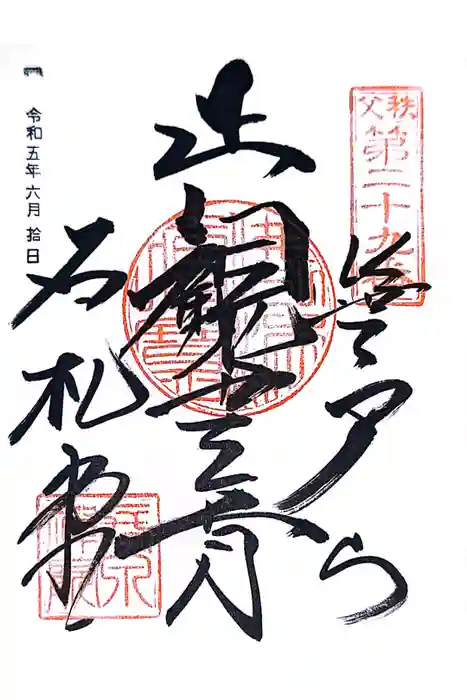 秩父第二十九番
笹戸山
正観世音
石札堂
令和五年六月拾日